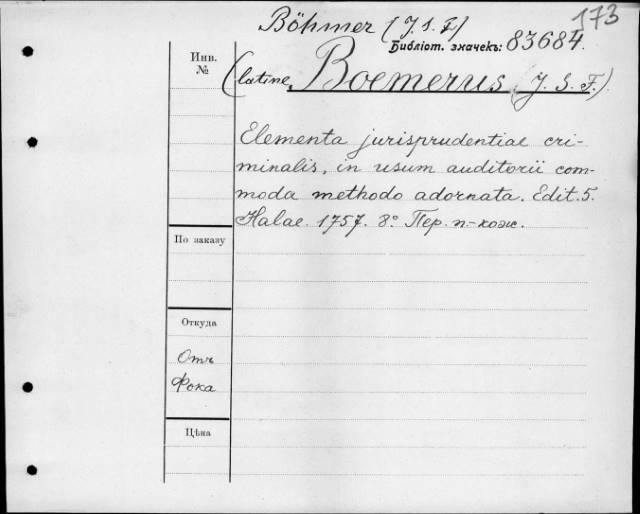 173
Böhmer (J. S. F)
Библіот. значекъ: 83684.
Инв. №
(latine, Boemerus (J. S. F.)
Elementa jurisprudentiae cri-
minalis, in usum auditorii com-
moda methodo adornata. Edit. 5.
Halae. 1757. 8° Пер. п.-кож.
По заказу
Откуда
Отъ
Фока
Цѣна